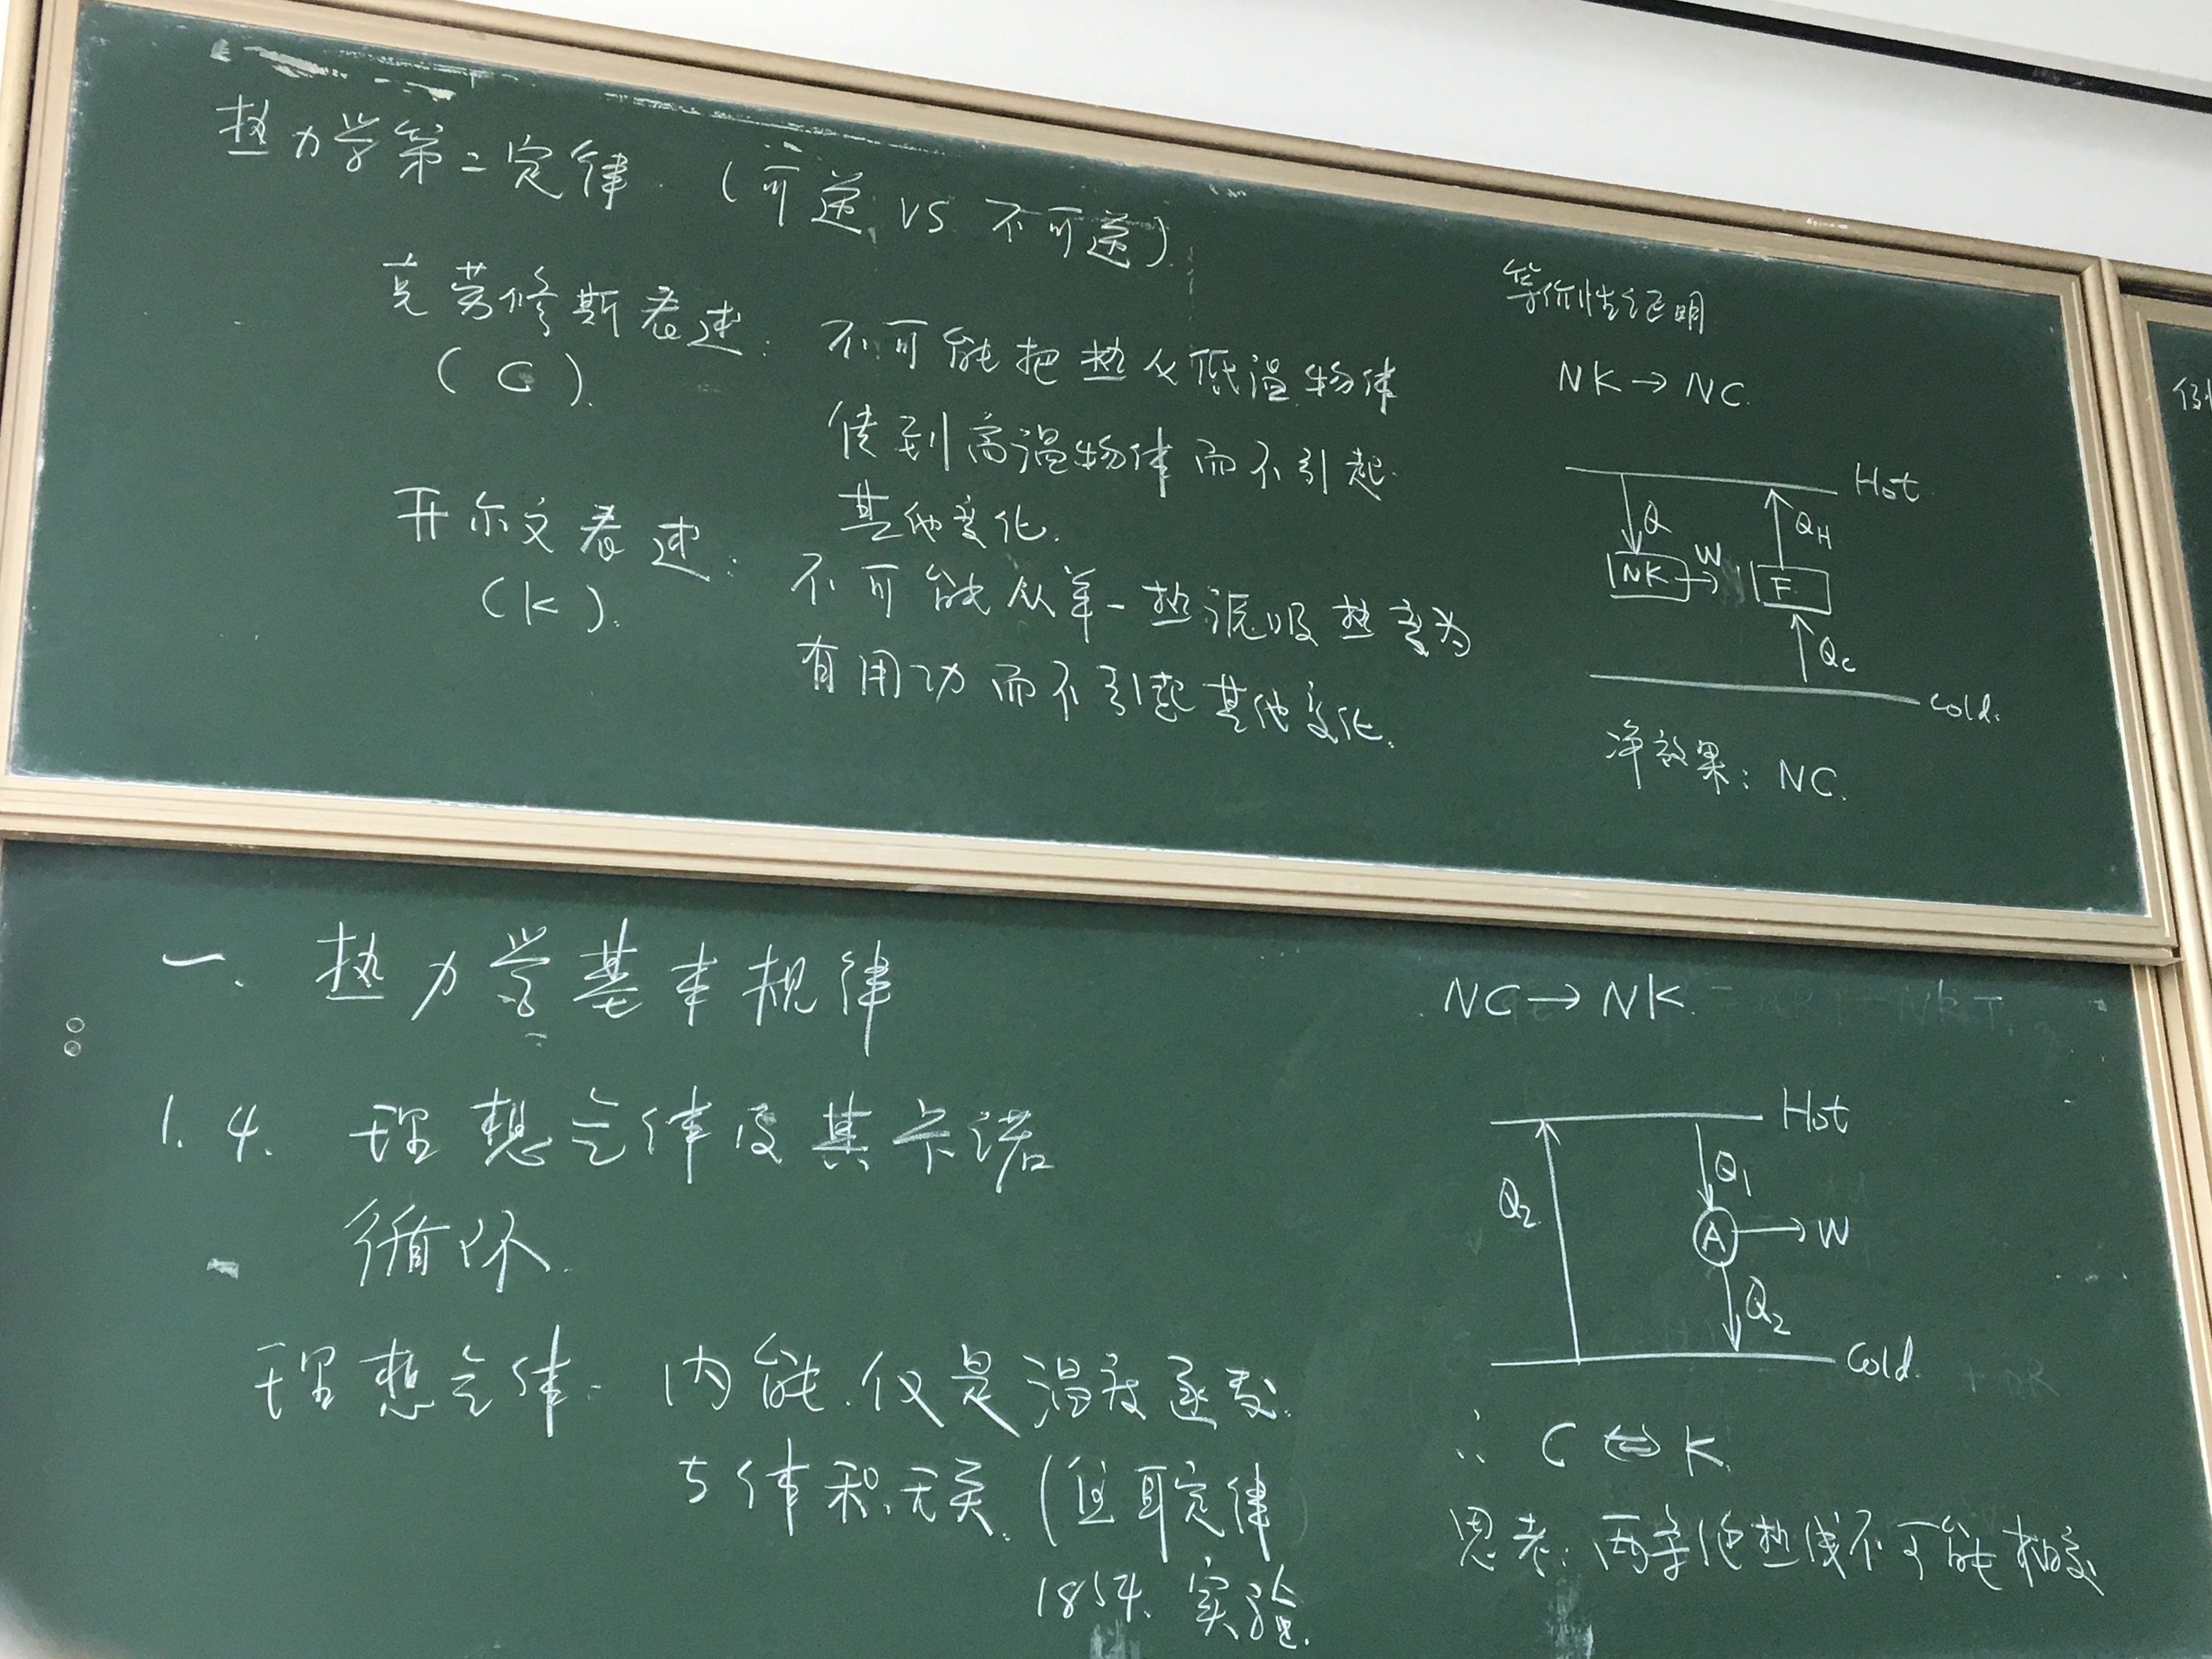 热力学第二定律 (可逆 VS 不可逆)
克劳修斯表述: 不可能把热从低温物体
(C).
传到高温物体而不引起
其他变化.
开尔文表述: 不可能从单一热源吸热变为
(K).
有用功而不引起其他变化.
等价性证明
NK → NC.
Hot
Q
QH
NK
W
F
Qc
Cold.
净效果: NC.
一. 热力学基本规律
1.4. 理想气体及其卡诺
循环.
理想气体. 内能仅是温度函数.
与体积无关. (焦耳定律
1854. 实验.
NC → NK.
Hot
Q2
Q1
A
W
Q2
Cold.
∴ C ⇔ K
思考: 两条绝热线不可能相交
例